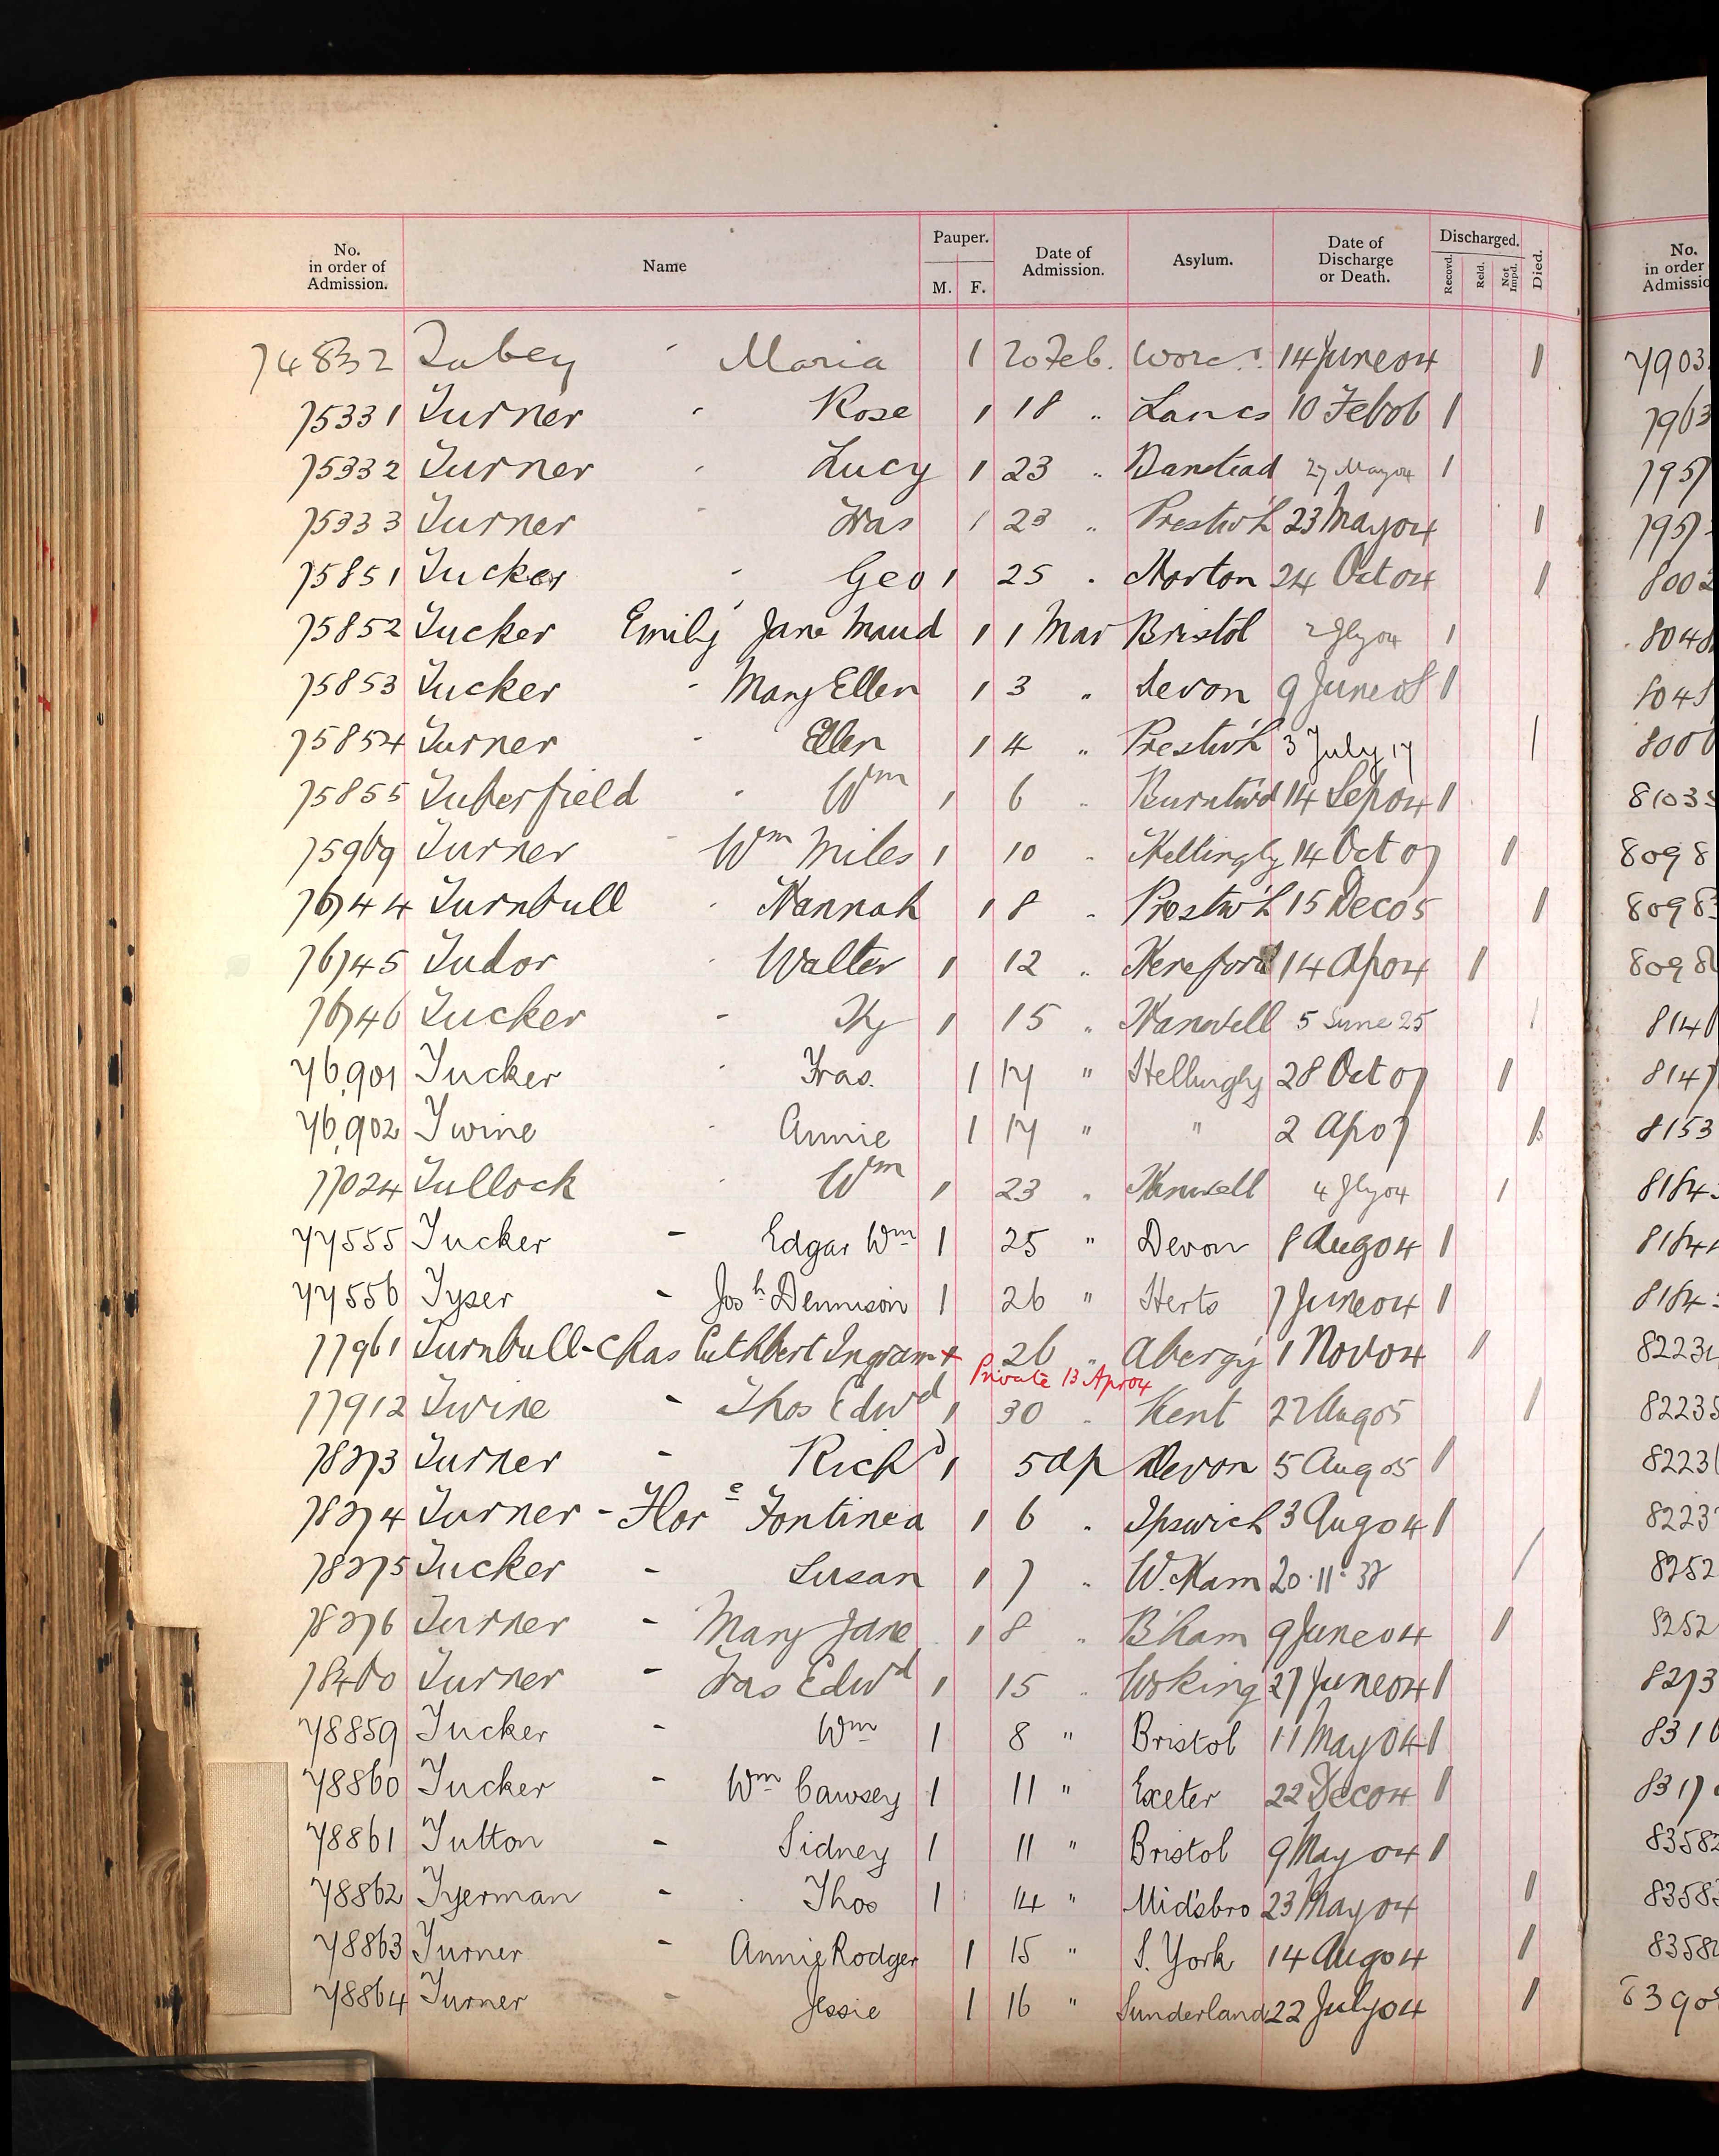 No. in order of Admission. Name Pauper. M. F. Date of Admission. Asylum. Date of Discharge or Death. Discharged. Recovd. Reld. Not Impd. Died. No. in order Admissio
74832 Tubey - Maria 1 20 Feb. Worc. 14 June 04 1 7903
75331 Turner - Rose 1 18 " Lancs 10 Feb 06 1 7963
75332 Turner - Lucy 1 23 " Banstead 27 May 04 1 7957
75333 Turner - Fras 1 23 " Prestw'h 23 May 04 1 7957
75851 Tucker - Geo 1 25 " Horton 24 Oct 04 1 8002
75852 Tucker Emily Jane Maud 1 1 Mar Bristol 2 Jly 04 1 8048
75853 Tucker - Mary Ellen 1 3 " Devon 9 June 08 1 8048
75854 Turner - Ellen 1 4 " Prestw'h 3 July 17 1 8006
75855 Tuberfield - Wm 1 6 " Burntw'd 14 Sep 04 1 81035
75969 Turner - Wm Miles 1 10 " Hellingly 14 Oct 07 1 8098
76744 Turnbull - Hannah 1 8 " Prestw'h 15 Dec 05 1 80983
76745 Tudor - Walter 1 12 " Hereford 14 Ap 04 1 8098
76746 Tucker - Hy 1 15 " Hanwell 5 June 25 1 8146
76,901 Tucker - Fras. 1 17 " Hellingly 28 Oct 07 1 8147
76,902 Twine - Annie 1 17 " " 2 Ap 07 1 8153
77024 Tullock - Wm 1 23 " Hanwell 4 Jly 04 1 8184
77555 Tucker - Edgar Wm 1 25 " Devon 8 Aug 04 1 8184
77556 Tyser - Josh Dennison 1 26 " Herts 7 June 04 1 8184
77961 Turnbull - Chas Cuthbert Ingram + 26 " Aberg'y 1 Nov 04 1 8223
Private 13 Apr 04
77912 Twine - Thos Edwd 1 30 " Kent 27 Aug 05 1 82235
78273 Turner - Richd 1 5 Ap Devon 5 Aug 05 1 8223
78274 Turner - Flore Fontinea 1 6 " Ipswich 3 Aug 04 1 8223
78275 Tucker - Susan 1 7 " W. Ham 20.11.38 1 8252
78276 Turner - Mary Jane 1 8 " B'ham 9 June 04 1 8252
78460 Turner - Fras Edwd 1 15 " Woking 27 June 04 1 8273
78859 Tucker - Wm 1 8 " Bristol 11 May 04 1 8316
78860 Tucker - Wm Cawsey 1 11 " Exeter 22 Dec 04 1 8317
78861 Tutton - Sidney 1 11 " Bristol 9 May 04 1 83582
78862 Tyerman - Thos 1 14 " Mid'sbro 23 May 04 1 8358
78863 Turner - Annie Rodger 1 15 " S. York 14 Aug 04 1 8358
78864 Turner - Jessie 1 16 " Sunderland 22 July 04 1 8390